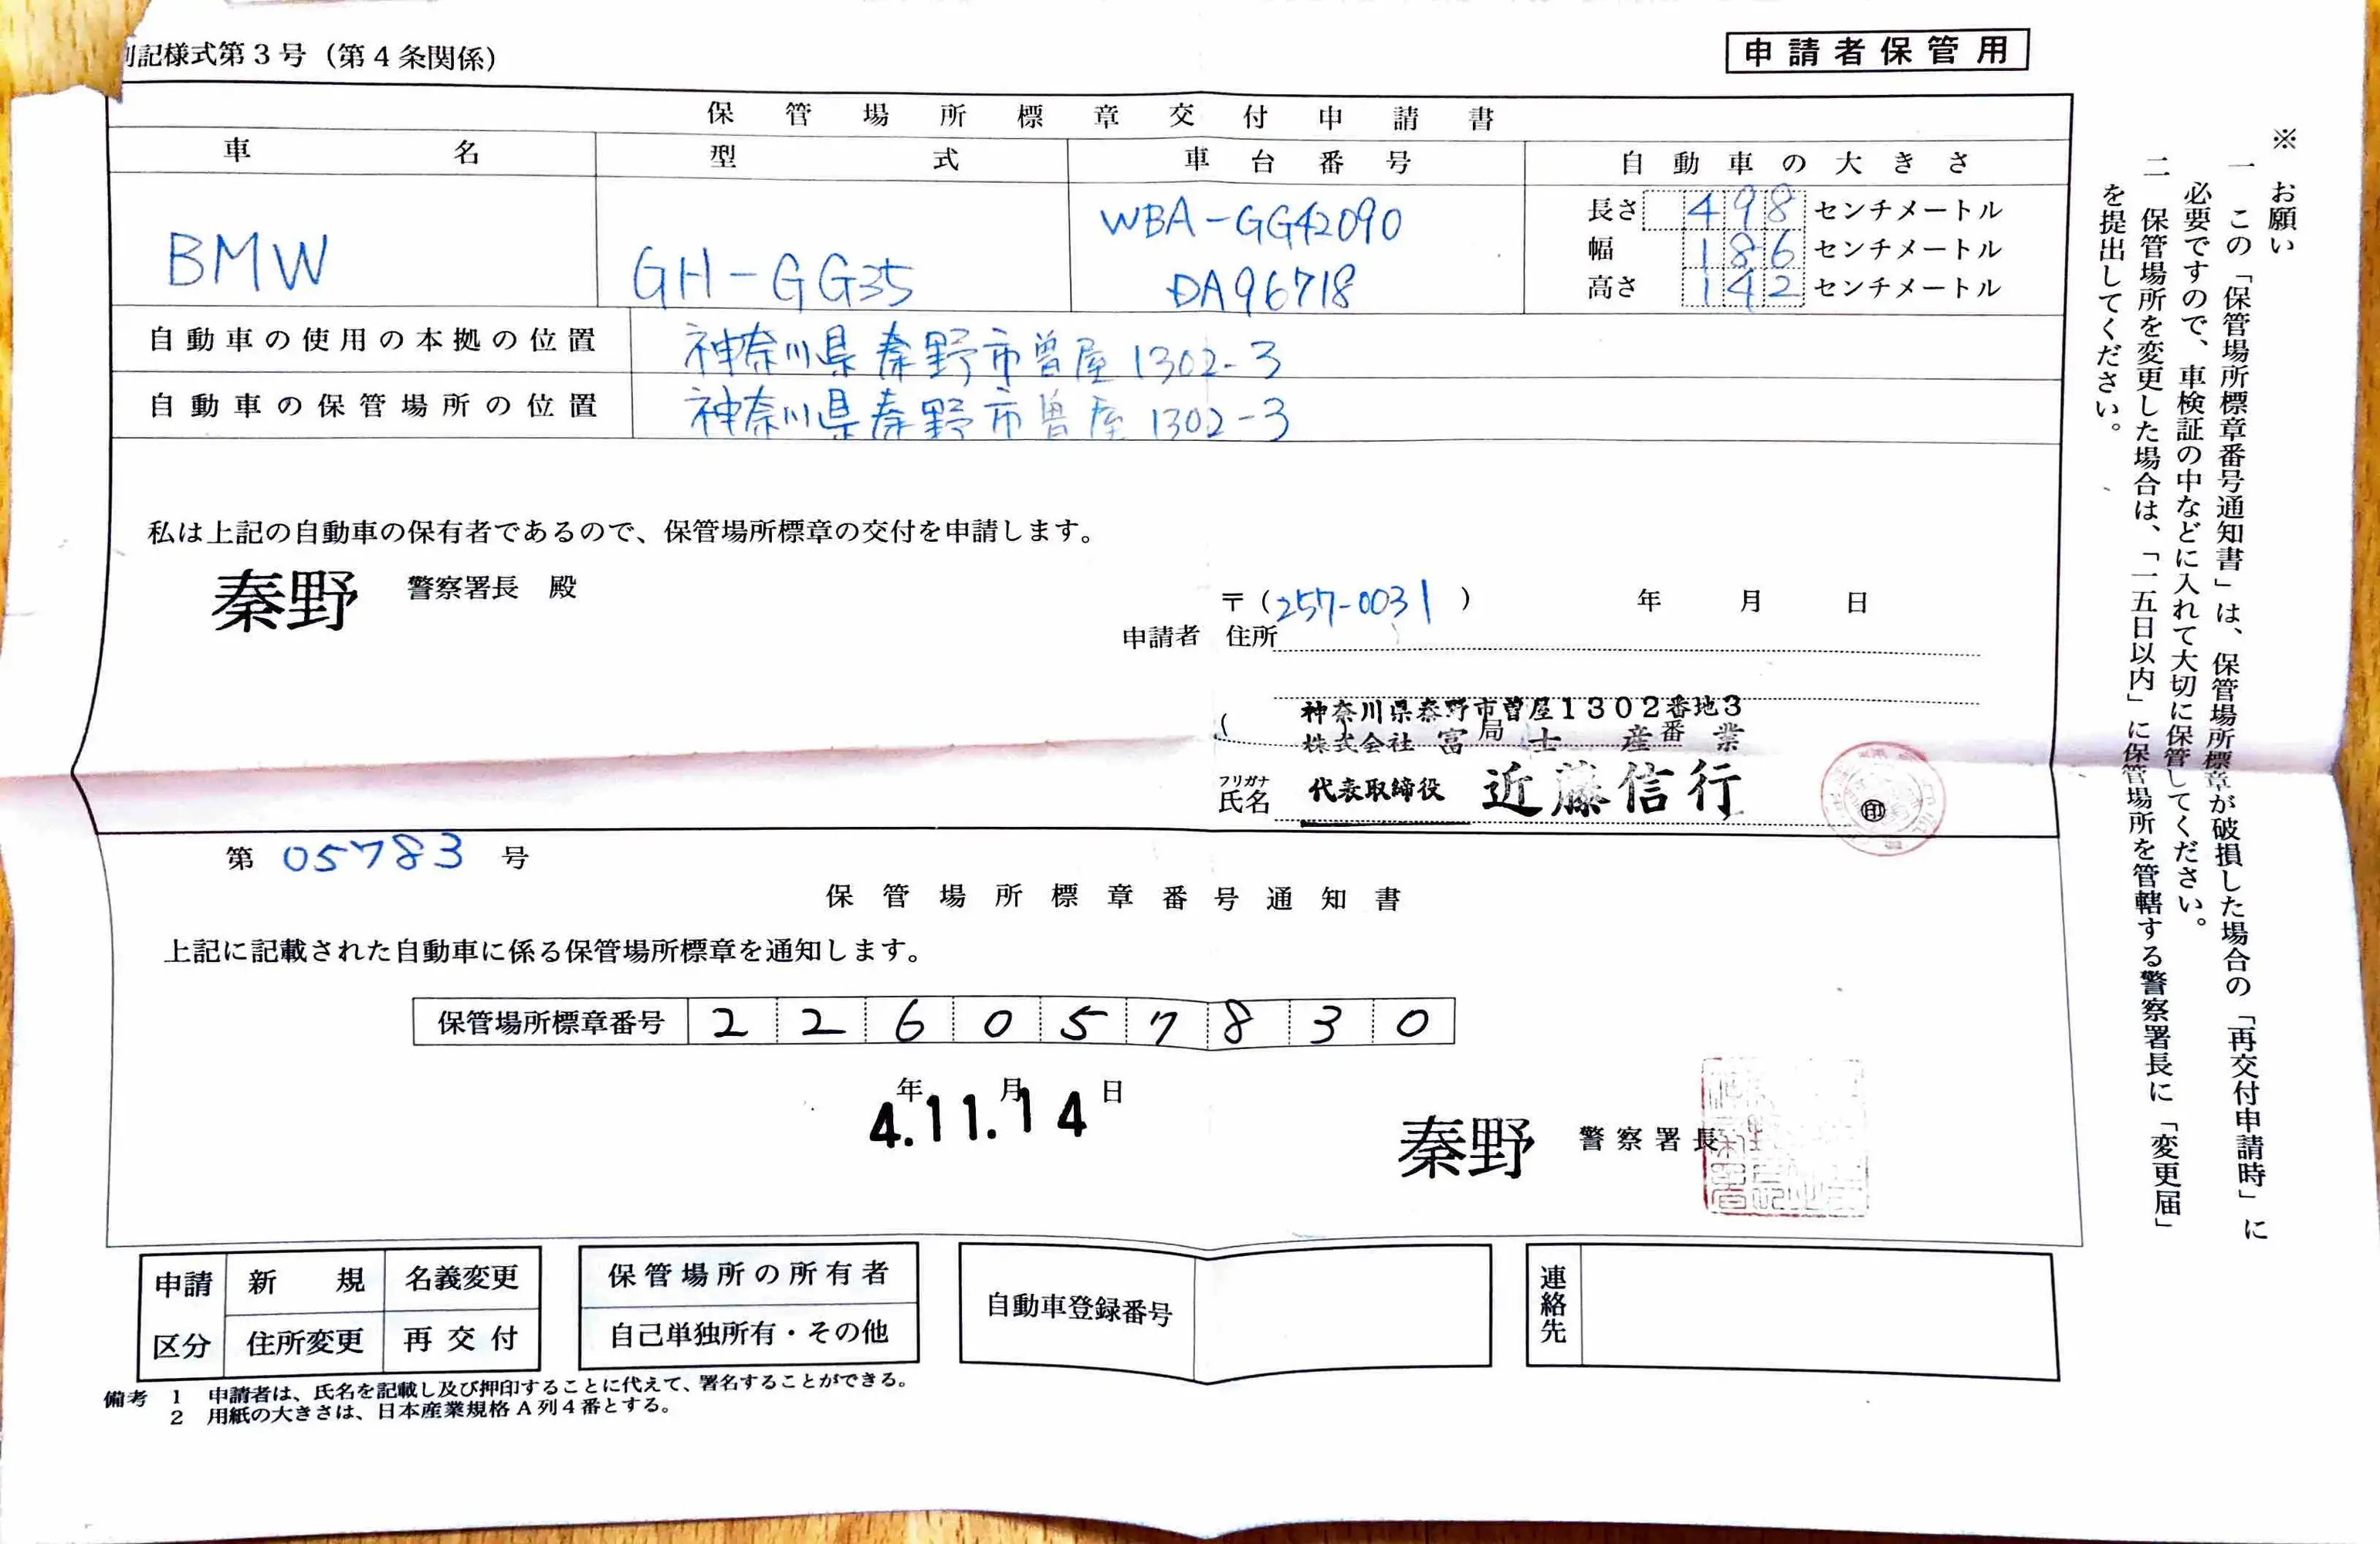 記様式第3号（第4条関係）
申請者保管用
保管場所標章交付申請書
車名 型式 車台番号 自動車の大きさ
BMW GH-GG35 WBA-GG42090 DA96718
長さ 498 センチメートル
幅 186 センチメートル
高さ 142 センチメートル
自動車の使用の本拠の位置 神奈川県秦野市曽屋1302-3
自動車の保管場所の位置 神奈川県秦野市曽屋1302-3
私は上記の自動車の保有者であるので、保管場所標章の交付を申請します。
秦野 警察署長 殿
〒（257-0031） 年 月 日
申請者 住所
神奈川県秦野市曽屋1302番地3
（ 局 番
株式会社 富士産業
フリガナ
氏名 代表取締役 近藤信行 印
第 05783 号
保管場所標章番号通知書
上記に記載された自動車に係る保管場所標章を通知します。
保管場所標章番号 226057830
年 月 日
4.11.14
秦野 警察署長
申請区分 新規 名義変更
住所変更 再交付
保管場所の所有者
自己単独所有・その他
自動車登録番号
連絡先
備考 1 申請者は、氏名を記載し及び押印することに代えて、署名することができる。
2 用紙の大きさは、日本産業規格A列4番とする。
※ お願い
一 この「保管場所標章番号通知書」は、保管場所標章が破損した場合の「再交付申請時」に
必要ですので、車検証の中などに入れて大切に保管してください。
二 保管場所を変更した場合は、「一五日以内」に保管場所を管轄する警察署長に「変更届」
を提出してください。